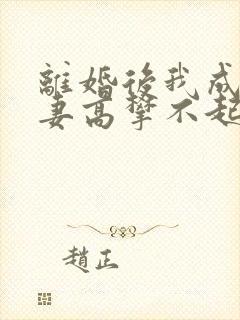 離婚後我成
妻高攀不起
趙正